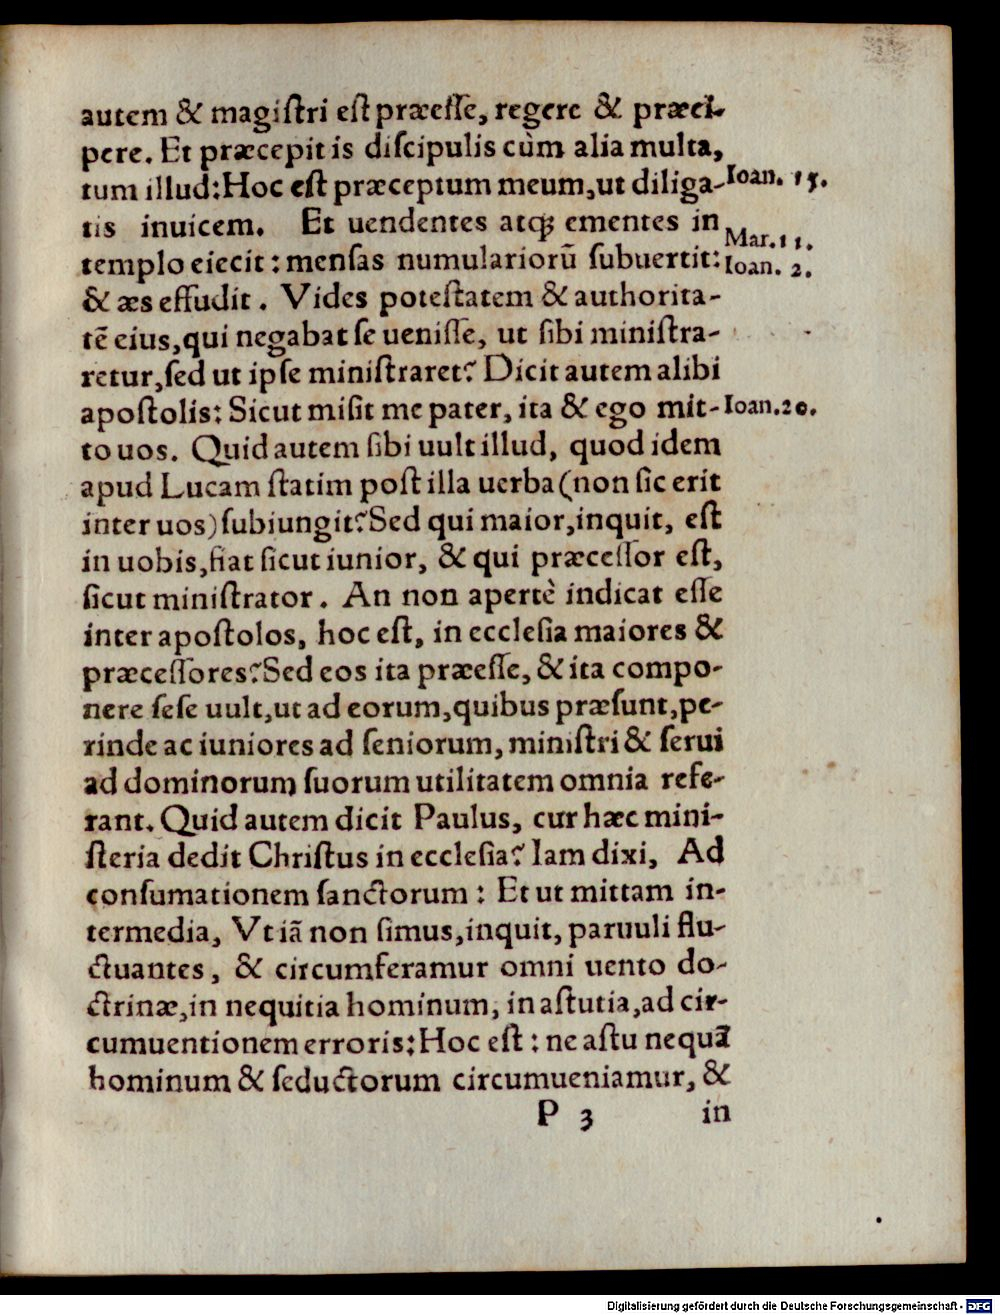 autem & magiſtri eſt præeſſe, regere & præci-
pere. Et præcepit is diſcipulis cùm alia multa,
tum illud: Hoc eſt præceptum meum, ut diliga- Ioan. 15.
tis inuicem. Et uendentes atqꝫ ementes in
Mar. 11.
templo eiecit: menſas numulariorũ ſubuertit: Ioan. 2.
& æs effudit. Vides poteſtatem & authorita-
tẽ eius, qui negabat ſe ueniſſe, ut ſibi miniſtra-
retur, ſed ut ipſe miniſtraret? Dicit autem alibi
apoſtolis: Sicut miſit me pater, ita & ego mit- Ioan. 20.
to uos. Quid autem ſibi uult illud, quod idem
apud Lucam ſtatim poſt illa uerba (non ſic erit
inter uos) ſubiungit? Sed qui maior, inquit, eſt
in uobis, fiat ſicut iunior, & qui præceſſor eſt,
ſicut miniſtrator. An non apertè indicat eſſe
inter apoſtolos, hoc eſt, in eccleſia maiores &
præceſſores? Sed eos ita præeſſe, & ita compo-
nere ſeſe uult, ut ad eorum, quibus præſunt, pe-
rinde ac iuniores ad ſeniorum, miniſtri & ſerui
ad dominorum ſuorum utilitatem omnia refe-
rant. Quid autem dicit Paulus, cur hæc mini-
ſteria dedit Chriſtus in eccleſia? Iam dixi, Ad
conſumationem ſanctorum: Et ut mittam in-
termedia, Vt iã non ſimus, inquit, paruuli flu-
ctuantes, & circumferamur omni uento do-
ctrinæ, in nequitia hominum, in aſtutia, ad cir-
cumuentionem erroris: Hoc eſt: ne aſtu nequã
hominum & ſeductorum circumueniamur, &
P 3 in
Digitalisierung gefördert durch die Deutsche Forschungsgemeinschaft - DFG